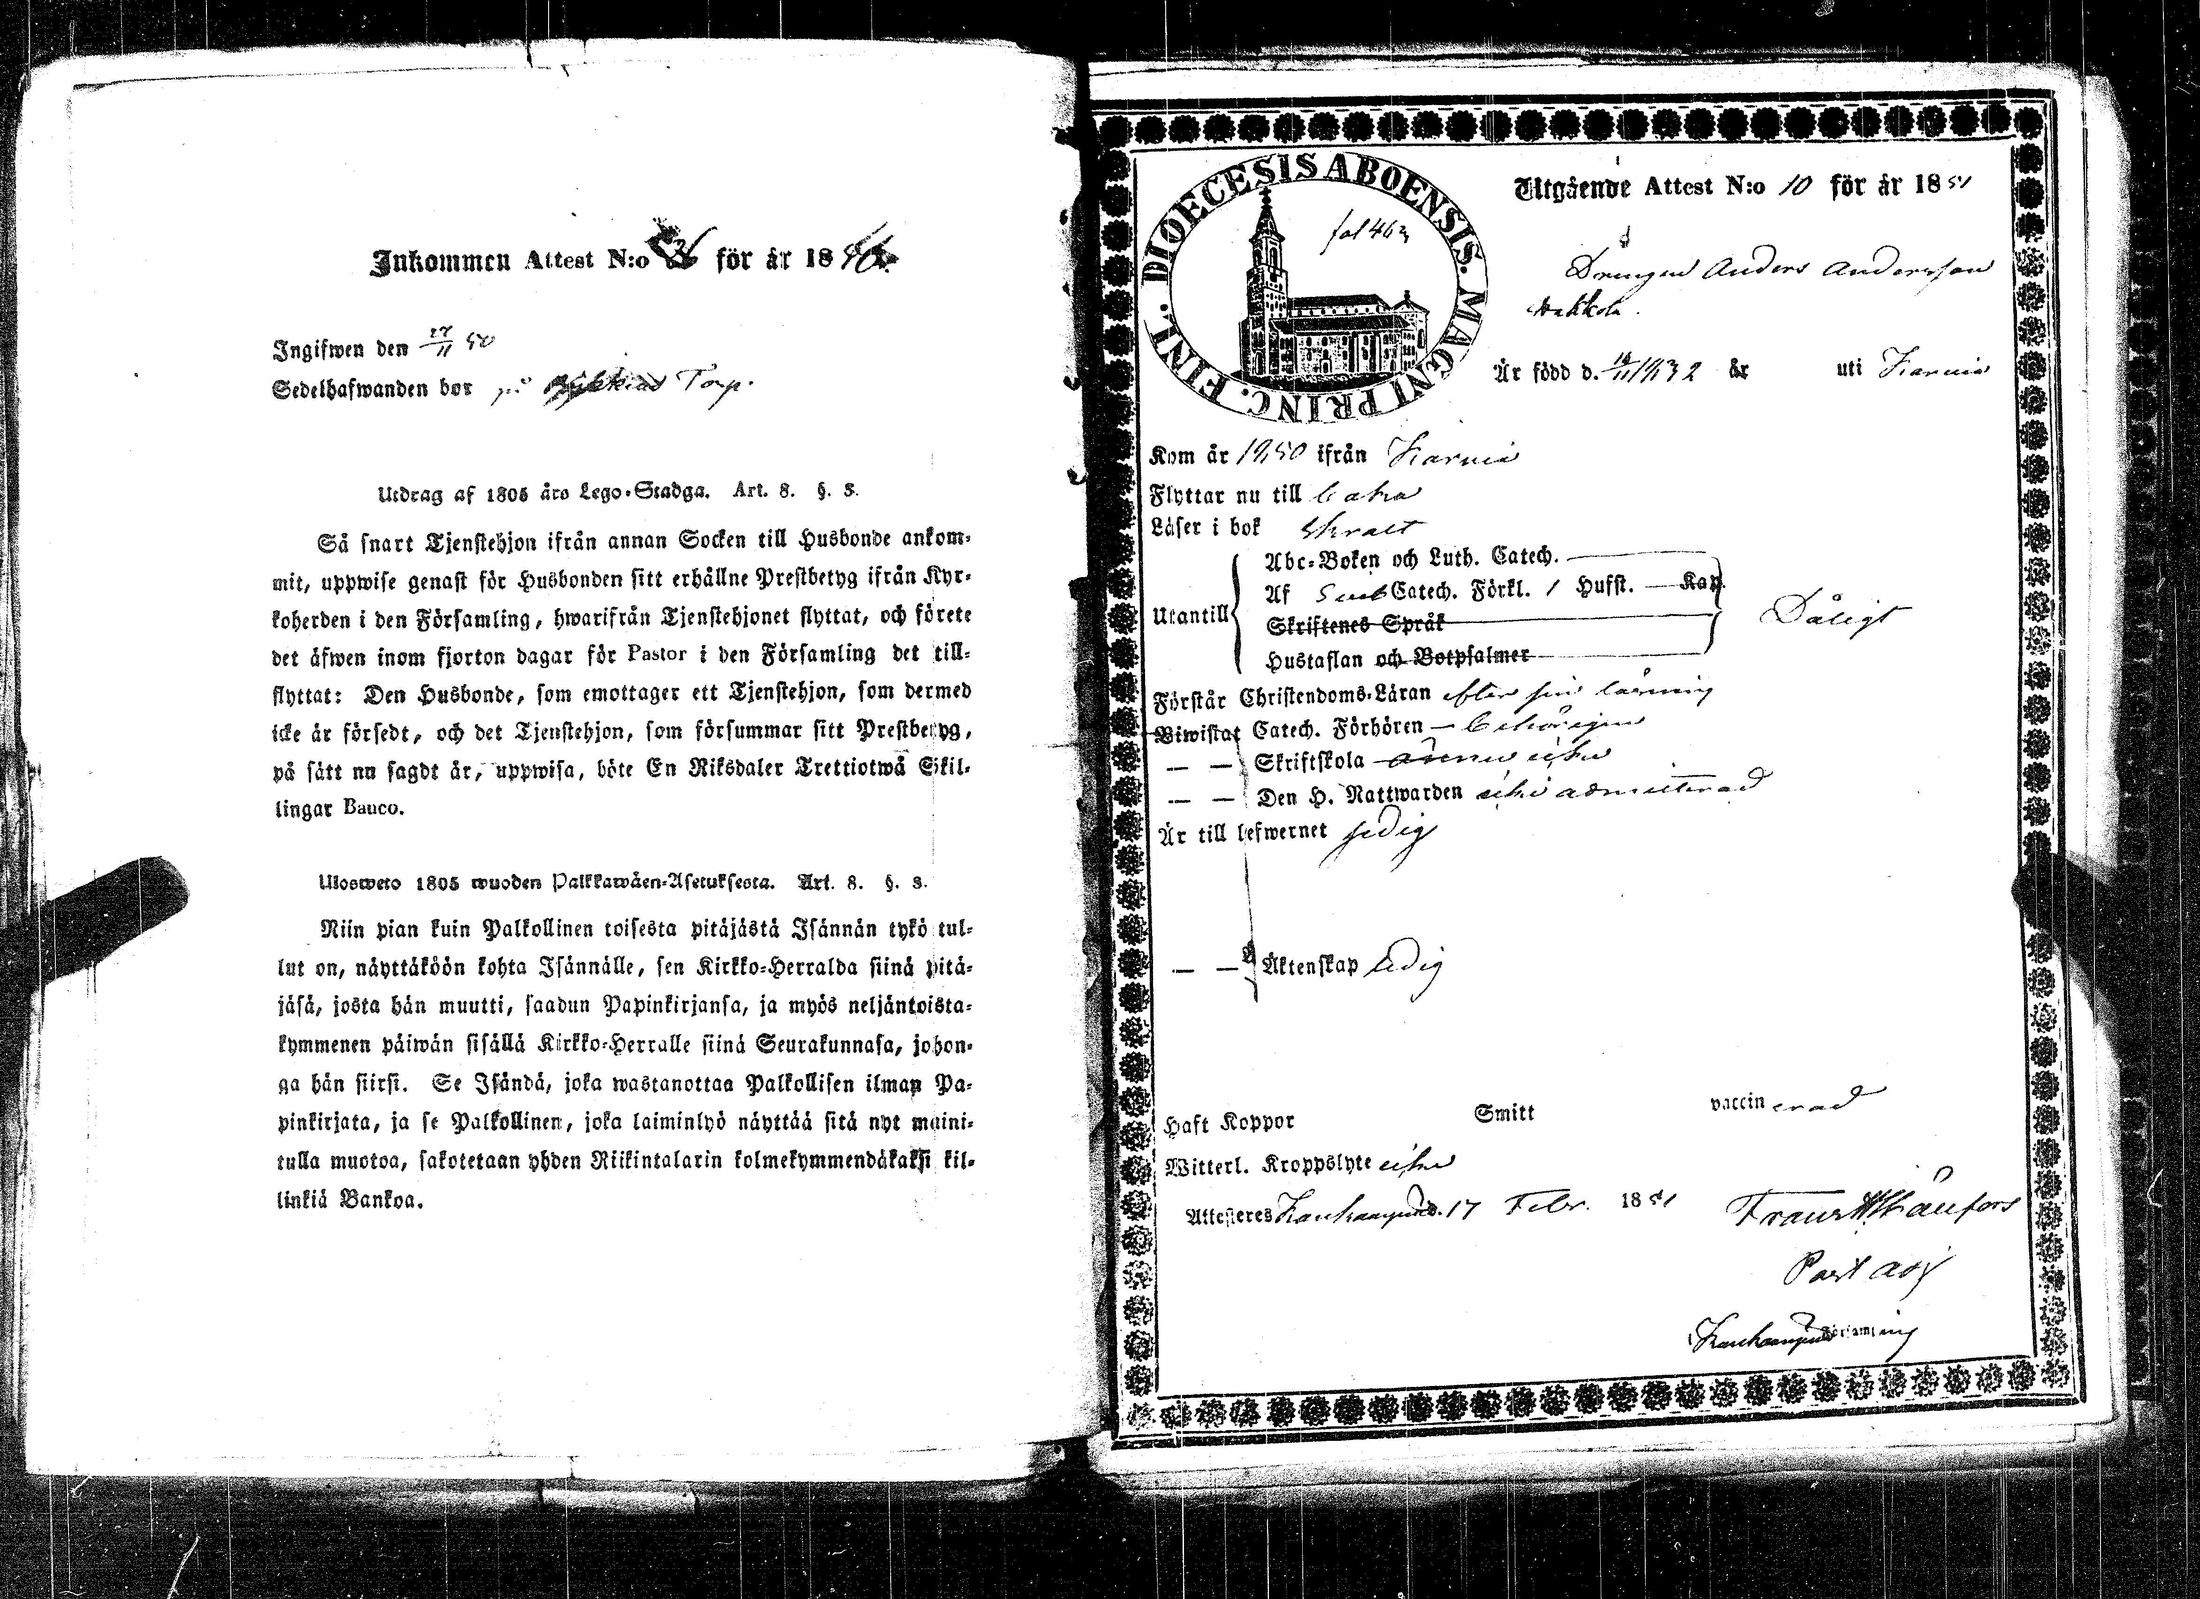 Inkommen Attest N:o för år 18
Ingifwen den 27/11 50
Sedelhafwanden bor på Torp.
Utdrag af 1805 års Lego-Stadga. Art. 8. §. 3.
Så snart Tjenstehjon ifrån annan Socken till Husbonde ankom-
mit, uppwise genast för Husbonden sitt erhållne Prestbetyg ifrån Kyr-
koherden i den Församling, hwarifrån Tjenstehjonet flyttat, och förete
det äfwen inom fjorton dagar för Pastor i den Församling det till-
flyttat: Den Husbonde, som emottager ett Tjenstehjon, som dermed
icke är försedt, och det Tjenstehjon, som försummar sitt Prestbetyg,
på sätt nu sagdt är, uppwisa, böte En Riksdaler Trettiotwå Skil-
lingar Banco.
Ulosweto 1805 wuoden Palkkawäen-Asetuksesta. Art. 8. §. 3.
Niin pian kuin Palkollinen toisesta pitäjästä Isännän tykö tul-
lut on, näyttäköön kohta Isännälle, sen Kirkko-Herralda siinä pitä-
jäsä, josta hän muutti, saadun Papinkirjansa, ja myös neljäntoista-
kymmenen päiwän sisällä Kirkko-Herralle siinä Seurakunnasa, johon-
ga hän siirsi. Se Isändä, joka wastanottaa Palkollisen ilman Pa-
pinkirjata, ja se Palkollinen, joka laiminlyö näyttää sitä nyt maini-
tulla muotoa, sakotetaan yhden Riikintalarin kolmekymmendäkaksi kil-
linkiä Bankoa.
DIOECESIS ABOENSIS. MAGNI PRINC. FINL.
fol 463
Utgående Attest N:o 10 för år 1851
Drengen Anders Andersson
Hakkola.
Är född d. 1832 år uti Karuna
Kom år 1850 ifrån Karuna
Flyttar nu till
Läser i bok Skralt
Utantill
Abc-Boken och Luth. Catech.
Af Catech. Förkl. 1 Hufst. — Kap.
Skriftenes Språk
Hustaflan och Botpsalmer
Dåligt
Förstår Christendoms-Läran efter sin läsning
Biwistat Catech. Förhören – behörigen
— — Skriftskola ännu icke
— — Den H. Nattwarden icke admitterad
Är till lefwernet sedig
— — Äktenskap ledig
Haft Koppor Smitt vaccinerad
Witterl. Kroppslyte icke
Attesteres Karl 17 Febr. 1851
Past adj
Församling